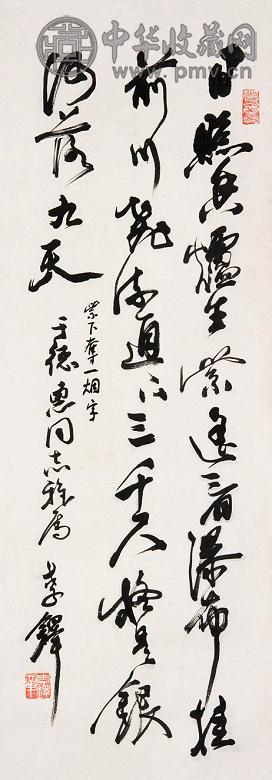 中华收藏网
www.pmv.cn
日照香爐生紫遥看瀑布挂
前川飛流直下三千尺疑是銀
河落九天
紫下奪一烟字
于德惠同志雅属
李鐸